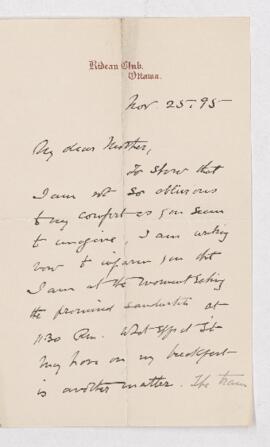 Rideau Club,
Ottawa.
Nov. 25. 95
My dear Mother,
To show that
I am not so oblivious
to my comfort as you seem
to imagine, I am writing
now to inform you that
I am at the moment eating
the promised sandwiches at
11:30 P.m. What effect
may have on my breakfast
is another matter. The train